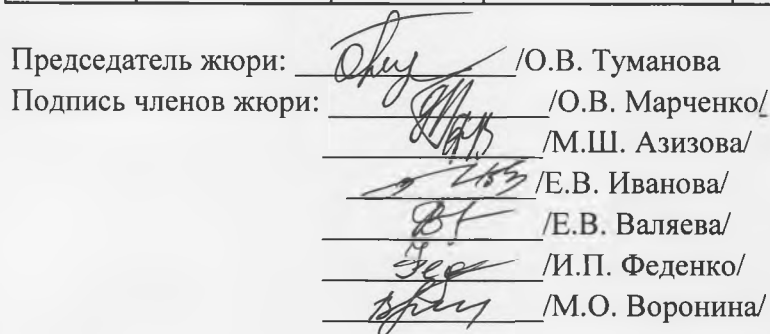 Председатель жюри: /О.В. Туманова
Подпись членов жюри: /О.В. Марченко/
/М.Ш. Азизова/
/Е.В. Иванова/
/Е.В. Валяева/
/И.П. Феденко/
/М.О. Воронина/